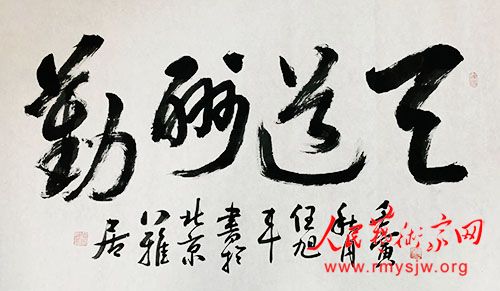 天道酬勤
秋月
任旭
書於
北京
八雅
居
人民藝術家网
www.rmysjw.org